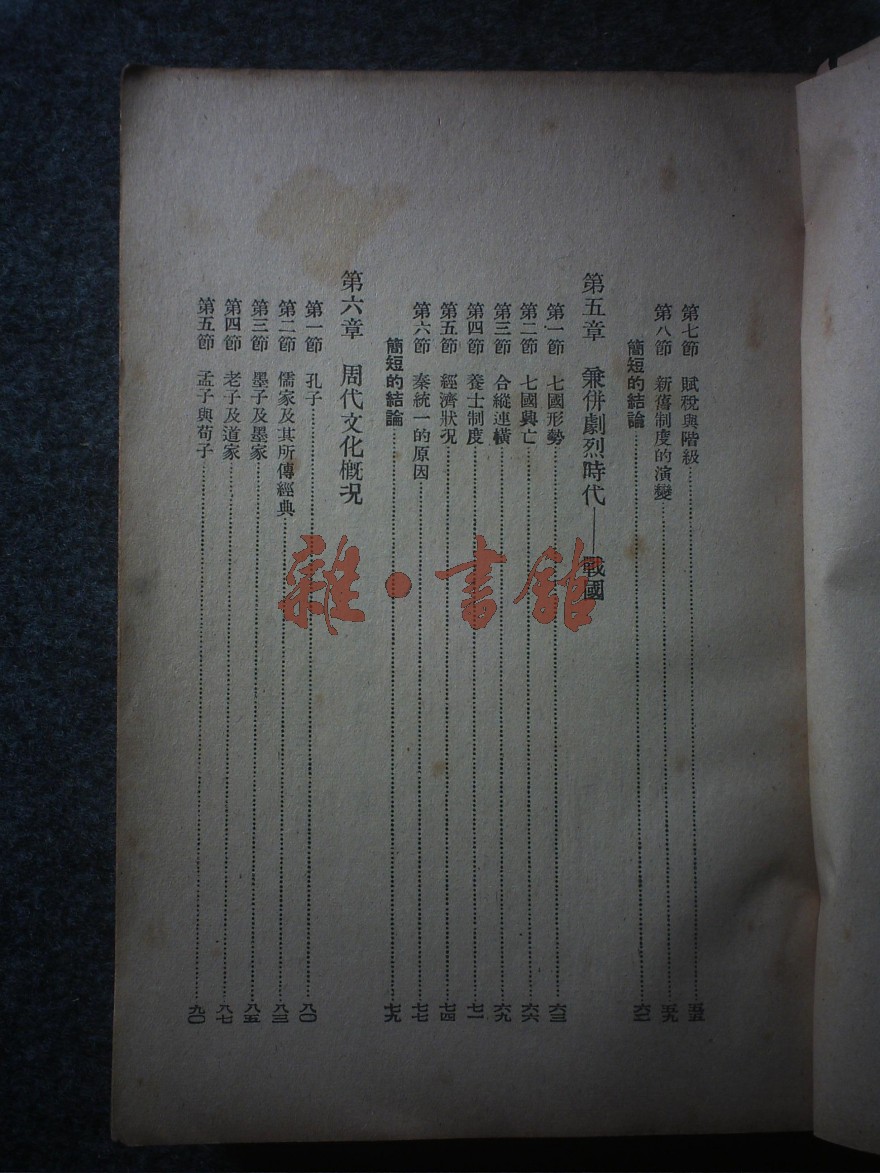 第七節　賦稅與階級……五五
第八節　新舊制度的演變……五九
簡短的結論……六二
第五章　兼併劇烈時代——戰國
第一節　七國形勢……六三
第二節　七國興亡……六六
第三節　合縱連橫……六九
第四節　養士制度……七一
第五節　經濟狀況……七四
第六節　秦統一的原因……七七
簡短的結論……七九
第六章　周代文化概況
第一節　孔子……八〇
第二節　儒家及其所傳經典……八三
第三節　墨子及墨家……八五
第四節　老子及道家……八七
第五節　孟子與荀子……九〇
雜·書館